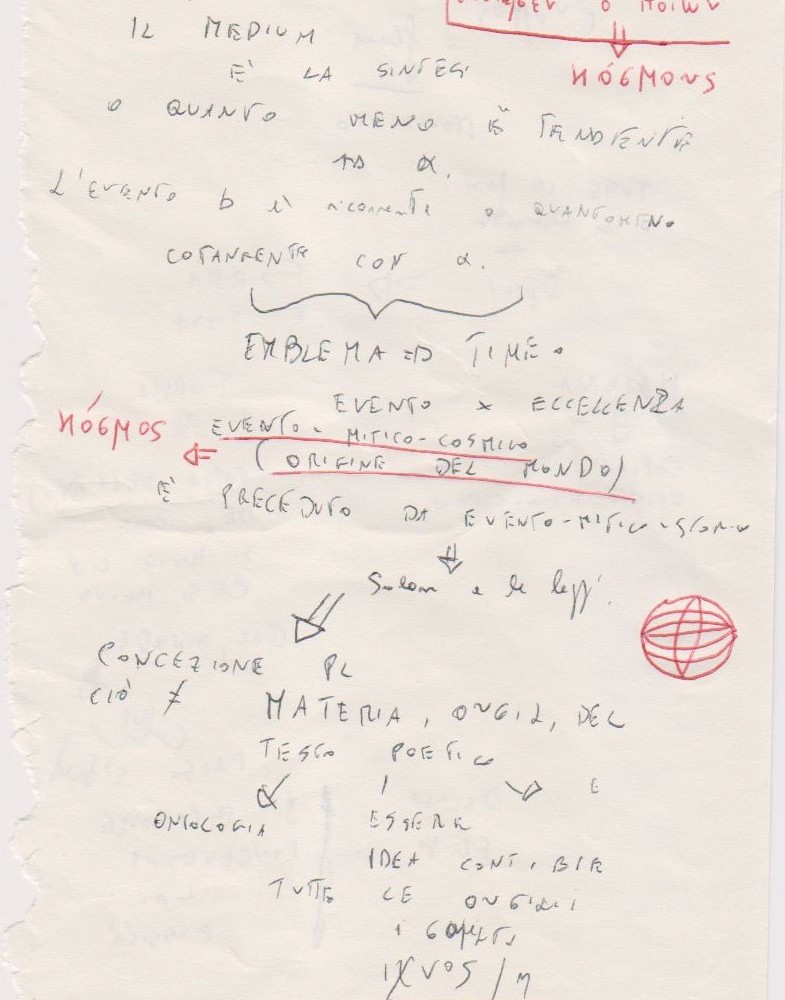 IL MEDIUM
E' LA SINTESI
O QUANTO MENO È TENDENTE
AD α.
L'EVENTO b è ricorrente o QUANTOMENO
COTANGENTE CON α.
EMBLEMA ⇒ TIMEO
EVENTO x ECCELLENZA
KÓSMOS EVENTO-MITICO-COSMICO
⇐ (ORIGINE DEL MONDO)
È PRECEDUTO DA EVENTO-MITICO-STORICO
⇓
Solon e le leggi.
CONCEZIONE PL
CIÒ ≠
MATERIA, ORIGIN, DEL
TESTO POETICO
E
ONTOLOGIA ESSERE
IDEA
TUTTE LE ORIGINI